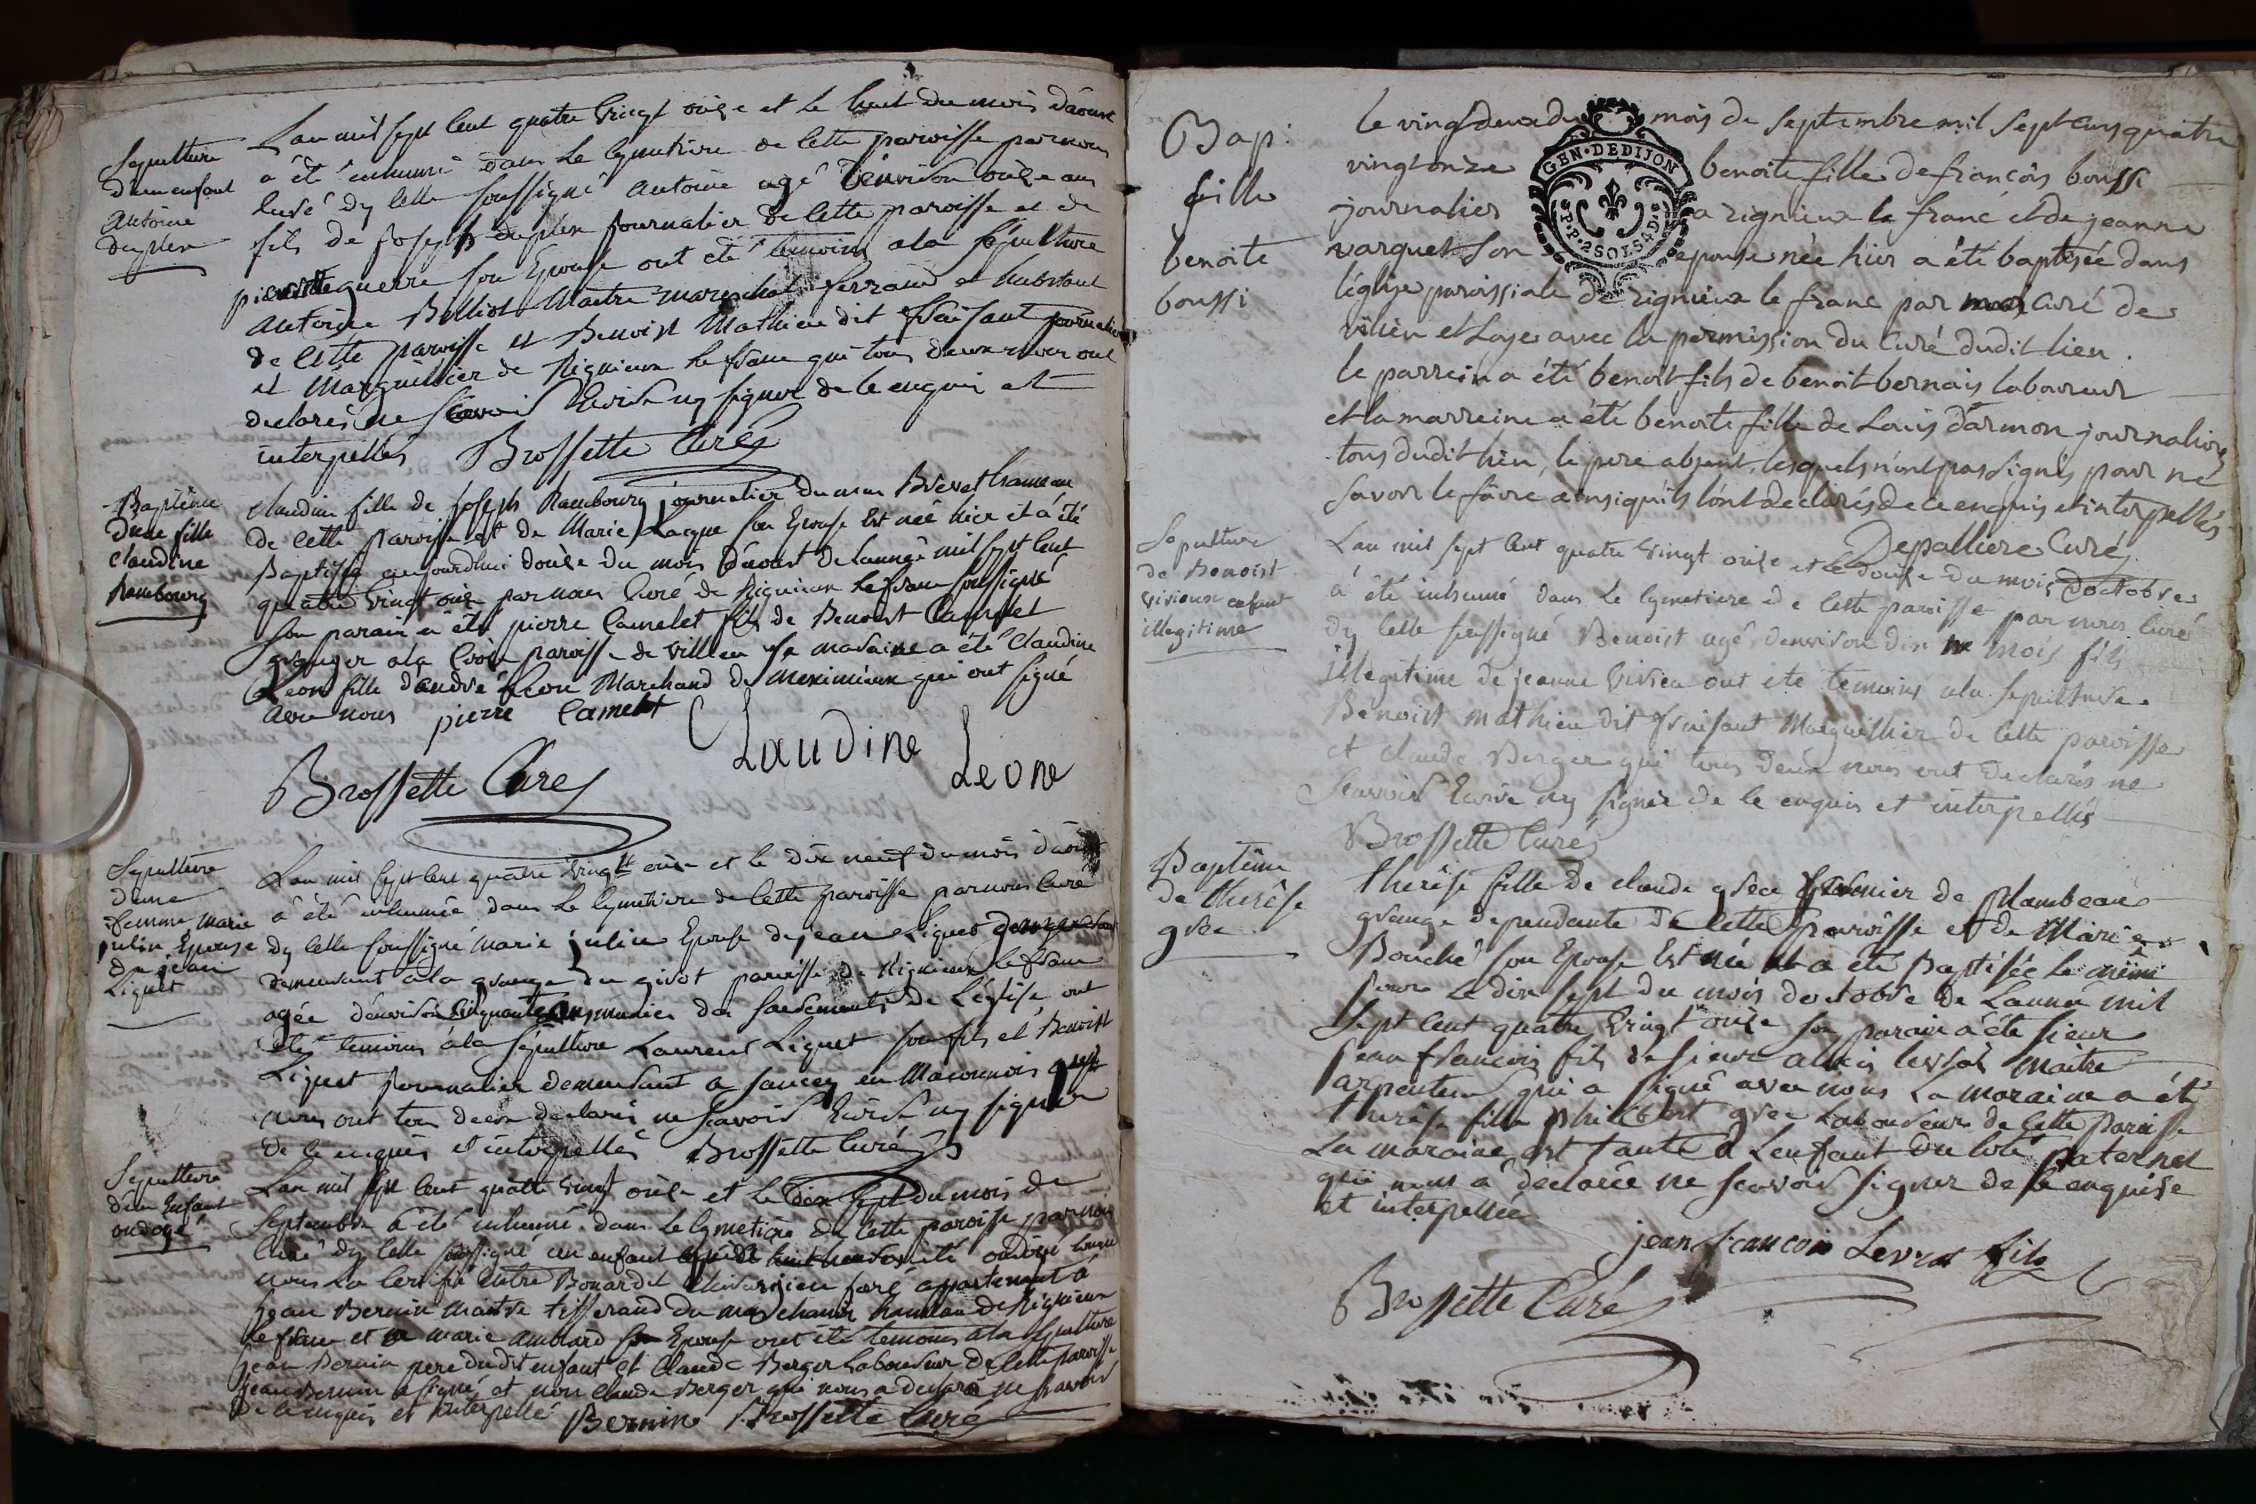 Sepulture
d'un enfant
Antoine
duplex
L'an mil sept cent quatre vingt onze et le huit du mois d'aoust
a été inhumé dans le cymetiere de cette paroisse par nous
curé d'y celle soussigné Antoine agé d'environ onze ans
fils de Joseph duplex journalier de cette paroisse et de
pierrette guerre son Epouse ont été temoins a la sépulture
Antoine Belliot Maitre marechal ferrand et habitant
de cette paroisse et Benoist Mathieu dit frisant journalier
et Marguillier de Rignieux le franc qui tous deux nous ont
declarés ne scavoir Ecrire ny signer de ce enquis et
interpellés Brossette Curé
Baptême
d'une fille
claudine
Rambourg
claudine fille de Joseph Rambourg journalier du mas Brevet hameau
de cette paroisse et de Marie Lacque son Epouse Est née hier et a été
Baptisée aujourdhui douze du mois d'aoust de l'année mil sept cent
quatre vingt onze par nous Curé de Rignieux le franc soussigné
son parain a été pierre Camelet fils de Benoist Camelet
granger a la Croix paroisse de Villieu sa maraine a été Claudine
Leone fille d'andré Leon Marchand de Meximieux qui ont signé
avec nous pierre Camelet
Claudine
Leone
Brossette Curé
Sepulture
d'une
femme marie
julin Epouse
de jean
Liguet
L'an mil sept cent quatre vingt onze et le dix neuf du mois d'aoust
a été inhumée dans le cymetiere de cette paroisse par nous curé
dy celle soussigné Marie julin Epouse de jean Liguet
demeurant a la grange du givot paroisse de Rignieux le franc
agée d'environ cinquante ans munies des sacrements de L'église ont
étés temoins a la sépulture Laurent Liguet son fils et Benoist
Liguet journalier demeurant a sancey en Maconnois
nous ont tous deux declarés ne scavoir Ecrire ny signer
de ce enquis et interpellés Brossette Curé
Sepulture
d'un Enfant
ondoyé
L'an mil sept cent quatre vingt onze et le dix sept du mois de
septembre a été inhumé dans le cymetiere de cette paroisse par nous
Curé dy celle soussigné un enfant ondoyé
nous l'a certifié chirurgien juré appartenant a
jean Bernin maitre tisserand du hameau de Rignieux
le franc et de marie amblard son Epouse ont été temoins a la sepulture
jean Bernin pere dudit enfant et Claude Berger Laboureur de cette paroisse
jean Bernin a signé et non claude Berger qui nous a declaré ne scavoir
de ce enquis et interpellé Bernin Brossette Curé
Bap:
fille
benoite
boussi
le vingt deux du mois de septembre mil sept cens quatre
vingt onze benoite fille de françois boussi
journalier a rignieux le franc et de jeanne
varquet son epouse née hier a été baptisée dans
l'église paroissiale de rignieux le franc par moi curé de
villieu et Loyes avec la permission du Curé dudit lieu.
le parrein a été benoit fils de benoit bernais laboureur
et la marreine a été benoite fille de Louis darmon journalier
tous dudit lieu, le pere absent, lesquels n'ont pas signés pour ne
savoir le faire ainsi qu'ils l'ont declarés de ce enquis et interpellés
Depalliere Curé
Sepulture
de Benoist
vivieux enfant
illegitime
L'an mil sept cent quatre vingt onze et le douze du mois d'octobre
a été inhumé dans le cymetiere de cette paroisse par nous curé
dy celle soussigné Benoist agé d'environ dix mois fils
illegitime de jeanne vivieu ont été temoins a la sepulture
Benoist mathieu dit frisant Marguillier de cette paroisse
et claude Berger qui tous deux nous ont declarés ne
scavoir Ecrire ny signer de ce enquis et interpellés
Brossette Curé
Baptême
de therèse
grec
therèse fille de claude grec grangier de Mambeau
grange dependante de cette paroisse et de Marie
Bouché son Epouse Est née et a été Baptisée le même
jour le dix sept du mois d'octobre de l'année mil
sept cent quatre vingt onze son parain a été sieur
jean françois fils de sieur levrat maitre
arpenteur qui a signé avec nous La maraine a été
therèse fille philibert grec Laboureur de cette paroisse
La maraine est tante de L'enfant du coté paternel
qui nous a declarée ne scavoir signer de ce enquise
et interpellée
jean francois Levrat fils
Brossette Curé
GEN·DE DIJON
P·P·2 SOLS 4 D·